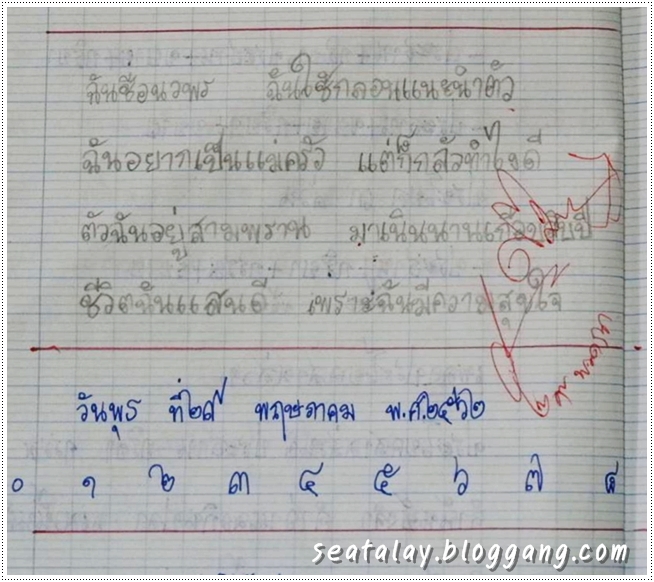 ฉันชื่อนวพร ฉันใช้กลอนแนะนำตัว
ฉันอยากเป็นแม่ครัว แต่ก็กลัวทำไงดี
ตัวฉันอยู่สามพราน มาเนินนานเกือบสิบปี
ชีวิตฉันแสนดี เพราะฉันมีความสุขใจ
วันพุธ ที่๒๙ พฤษภาคม พ.ศ.๒๕๖๒
๐ ๑ ๒ ๓ ๔ ๕ ๖ ๗ ๘
seatalay.bloggang.com